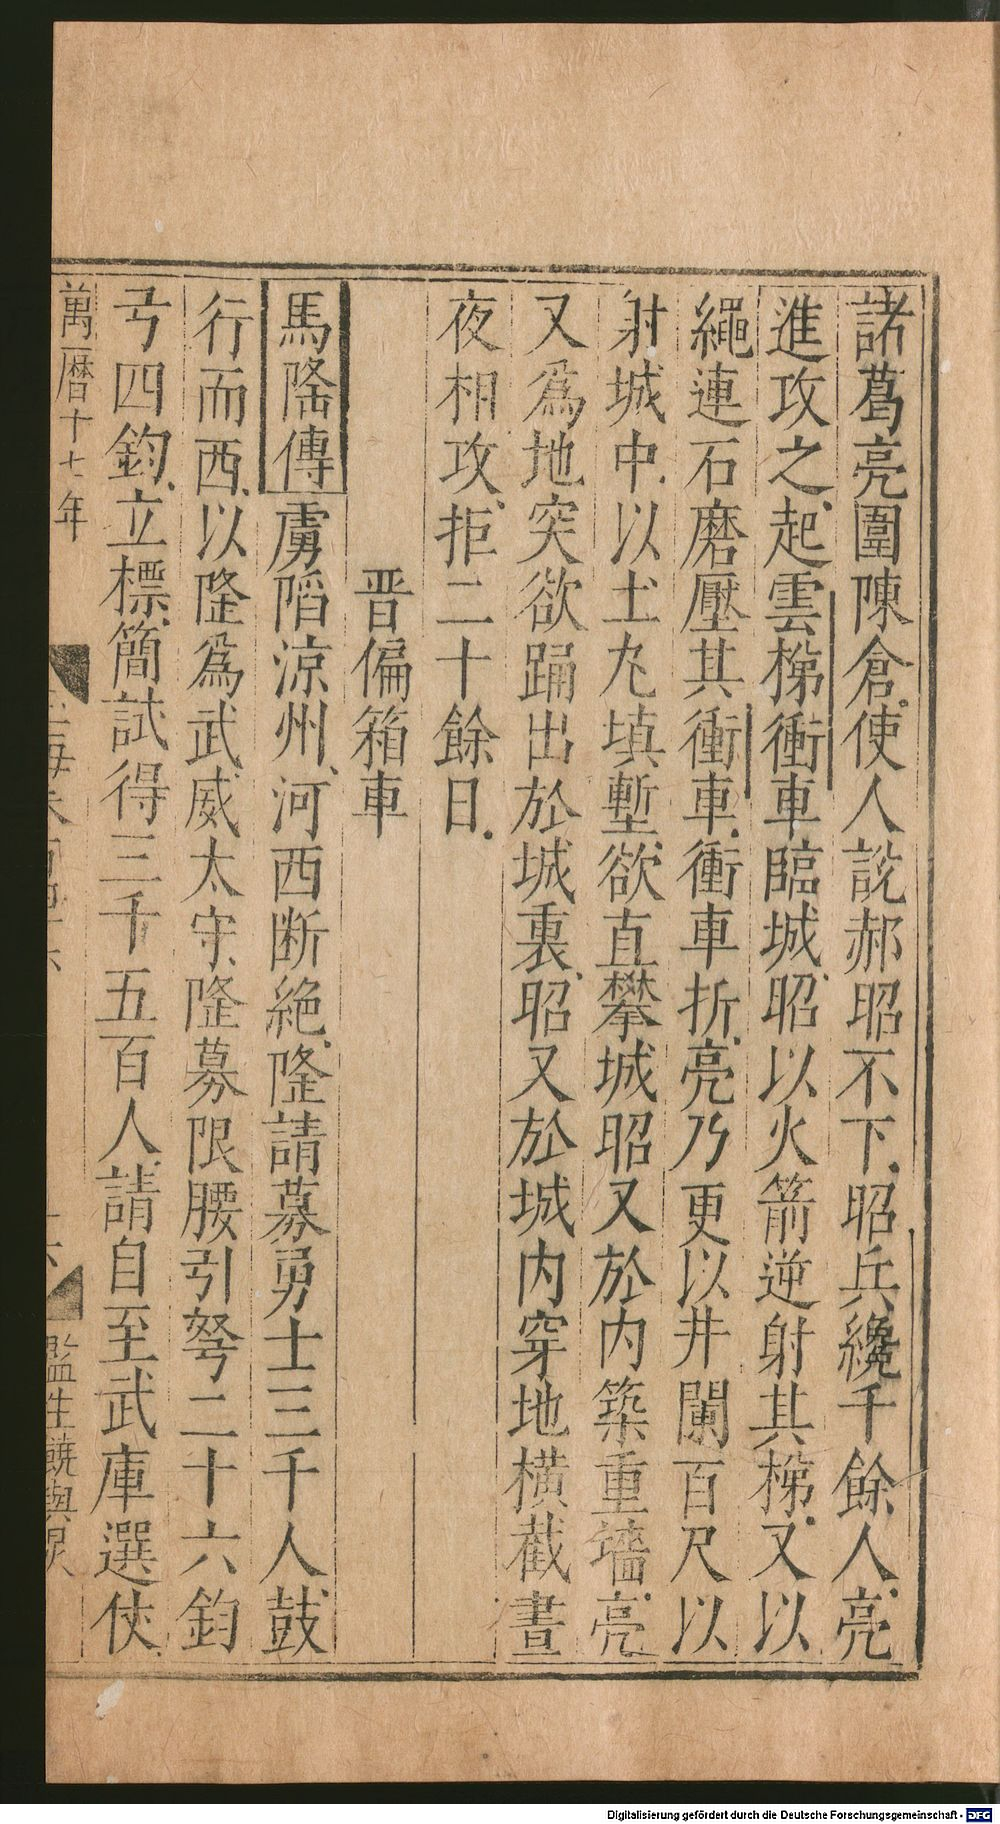 諸葛亮圍陳倉使人說郝昭不下昭兵纔千餘人亮
進攻之起雲梯衝車臨城昭以火箭逆射其梯又以
繩連石磨壓其衝車衝車折亮乃更以井闌百尺以
射城中以土丸填塹欲直攀城昭又於內築重墻亮
又爲地突欲踊出於城裏昭又於城內穿地橫截晝
夜相攻拒二十餘日
晋偏箱車
馬隆傳虜陷涼州河西断絕隆請募勇士三千人鼓
行而西以隆爲武威太守隆募限腰引弩二十六鈞
弓四鈞立標簡試得三千五百人請自至武庫選仗
萬曆十七年
監生饒與
Digitalisierung gefördert durch die Deutsche Forschungsgemeinschaft - DFG